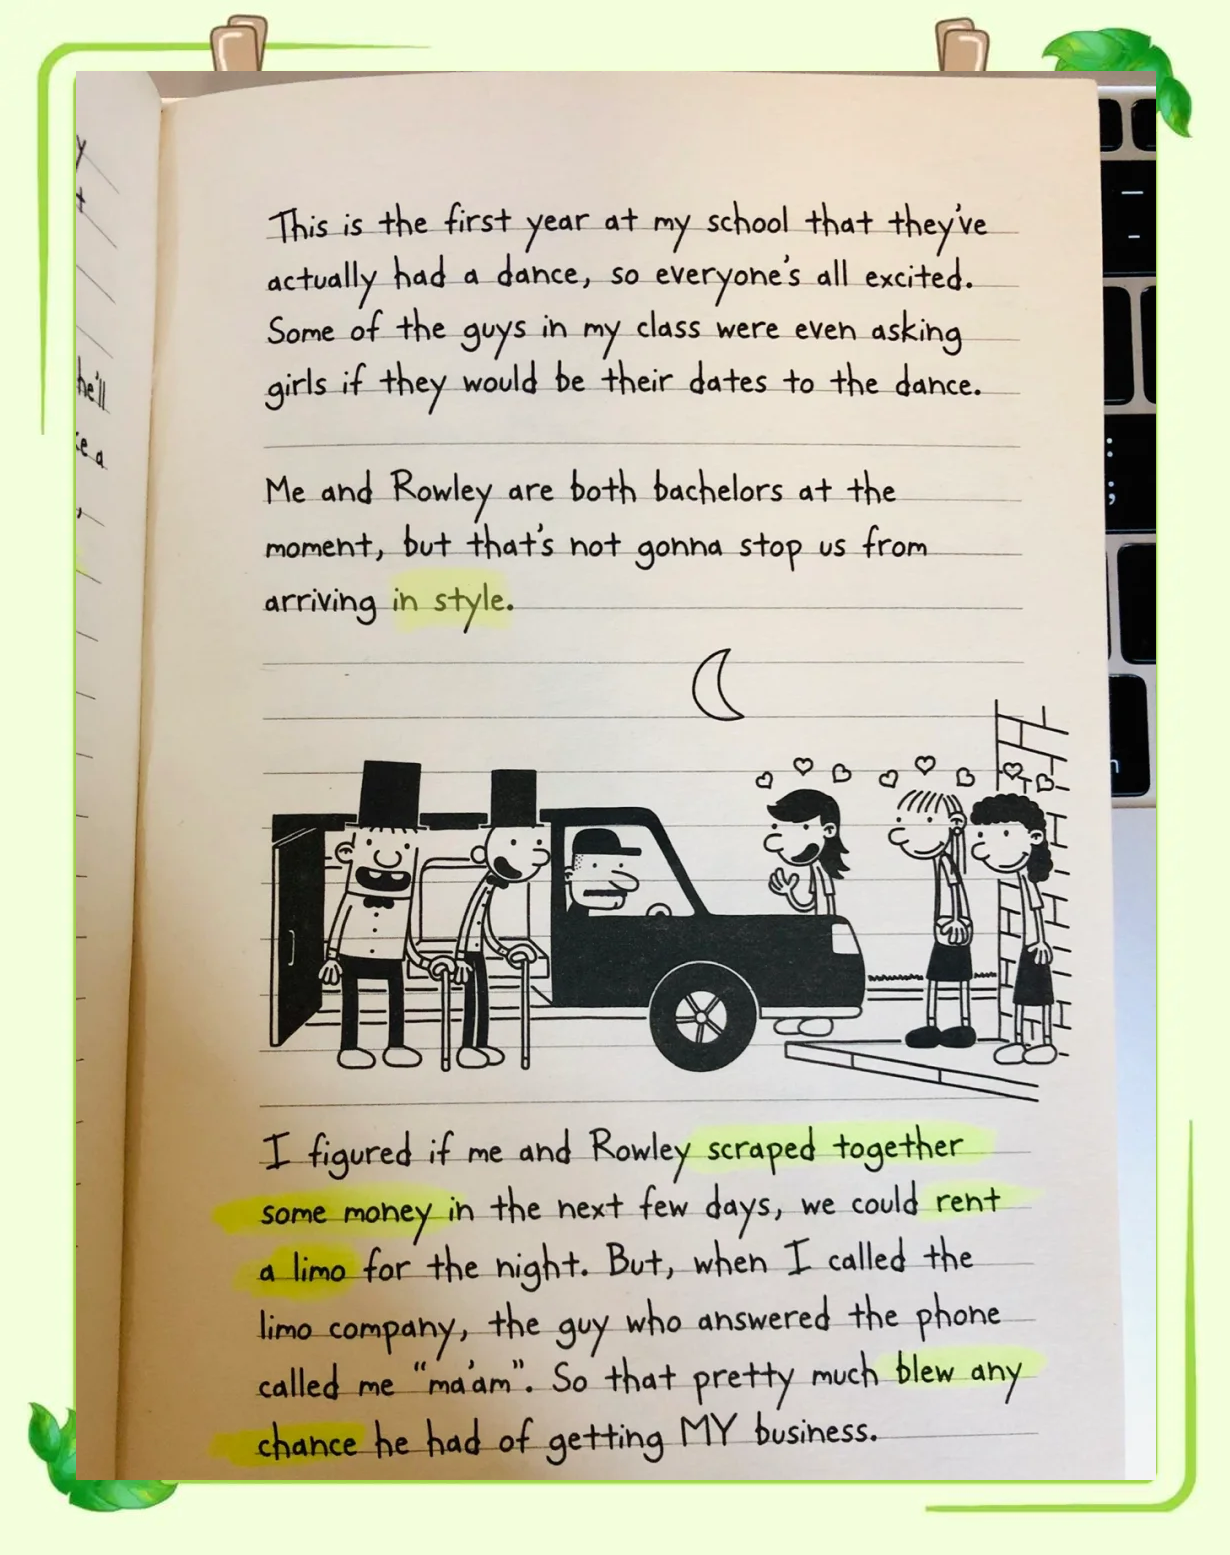 y
t
he'll
ke a
,
This is the first year at my school that they've
actually had a dance, so everyone's all excited.
Some of the guys in my class were even asking
girls if they would be their dates to the dance.
Me and Rowley are both bachelors at the
moment, but that's not gonna stop us from
arriving in style.
I figured if me and Rowley scraped together
some money in the next few days, we could rent
a limo for the night. But, when I called the
limo company, the guy who answered the phone
called me “ma'am”. So that pretty much blew any
chance he had of getting MY business.